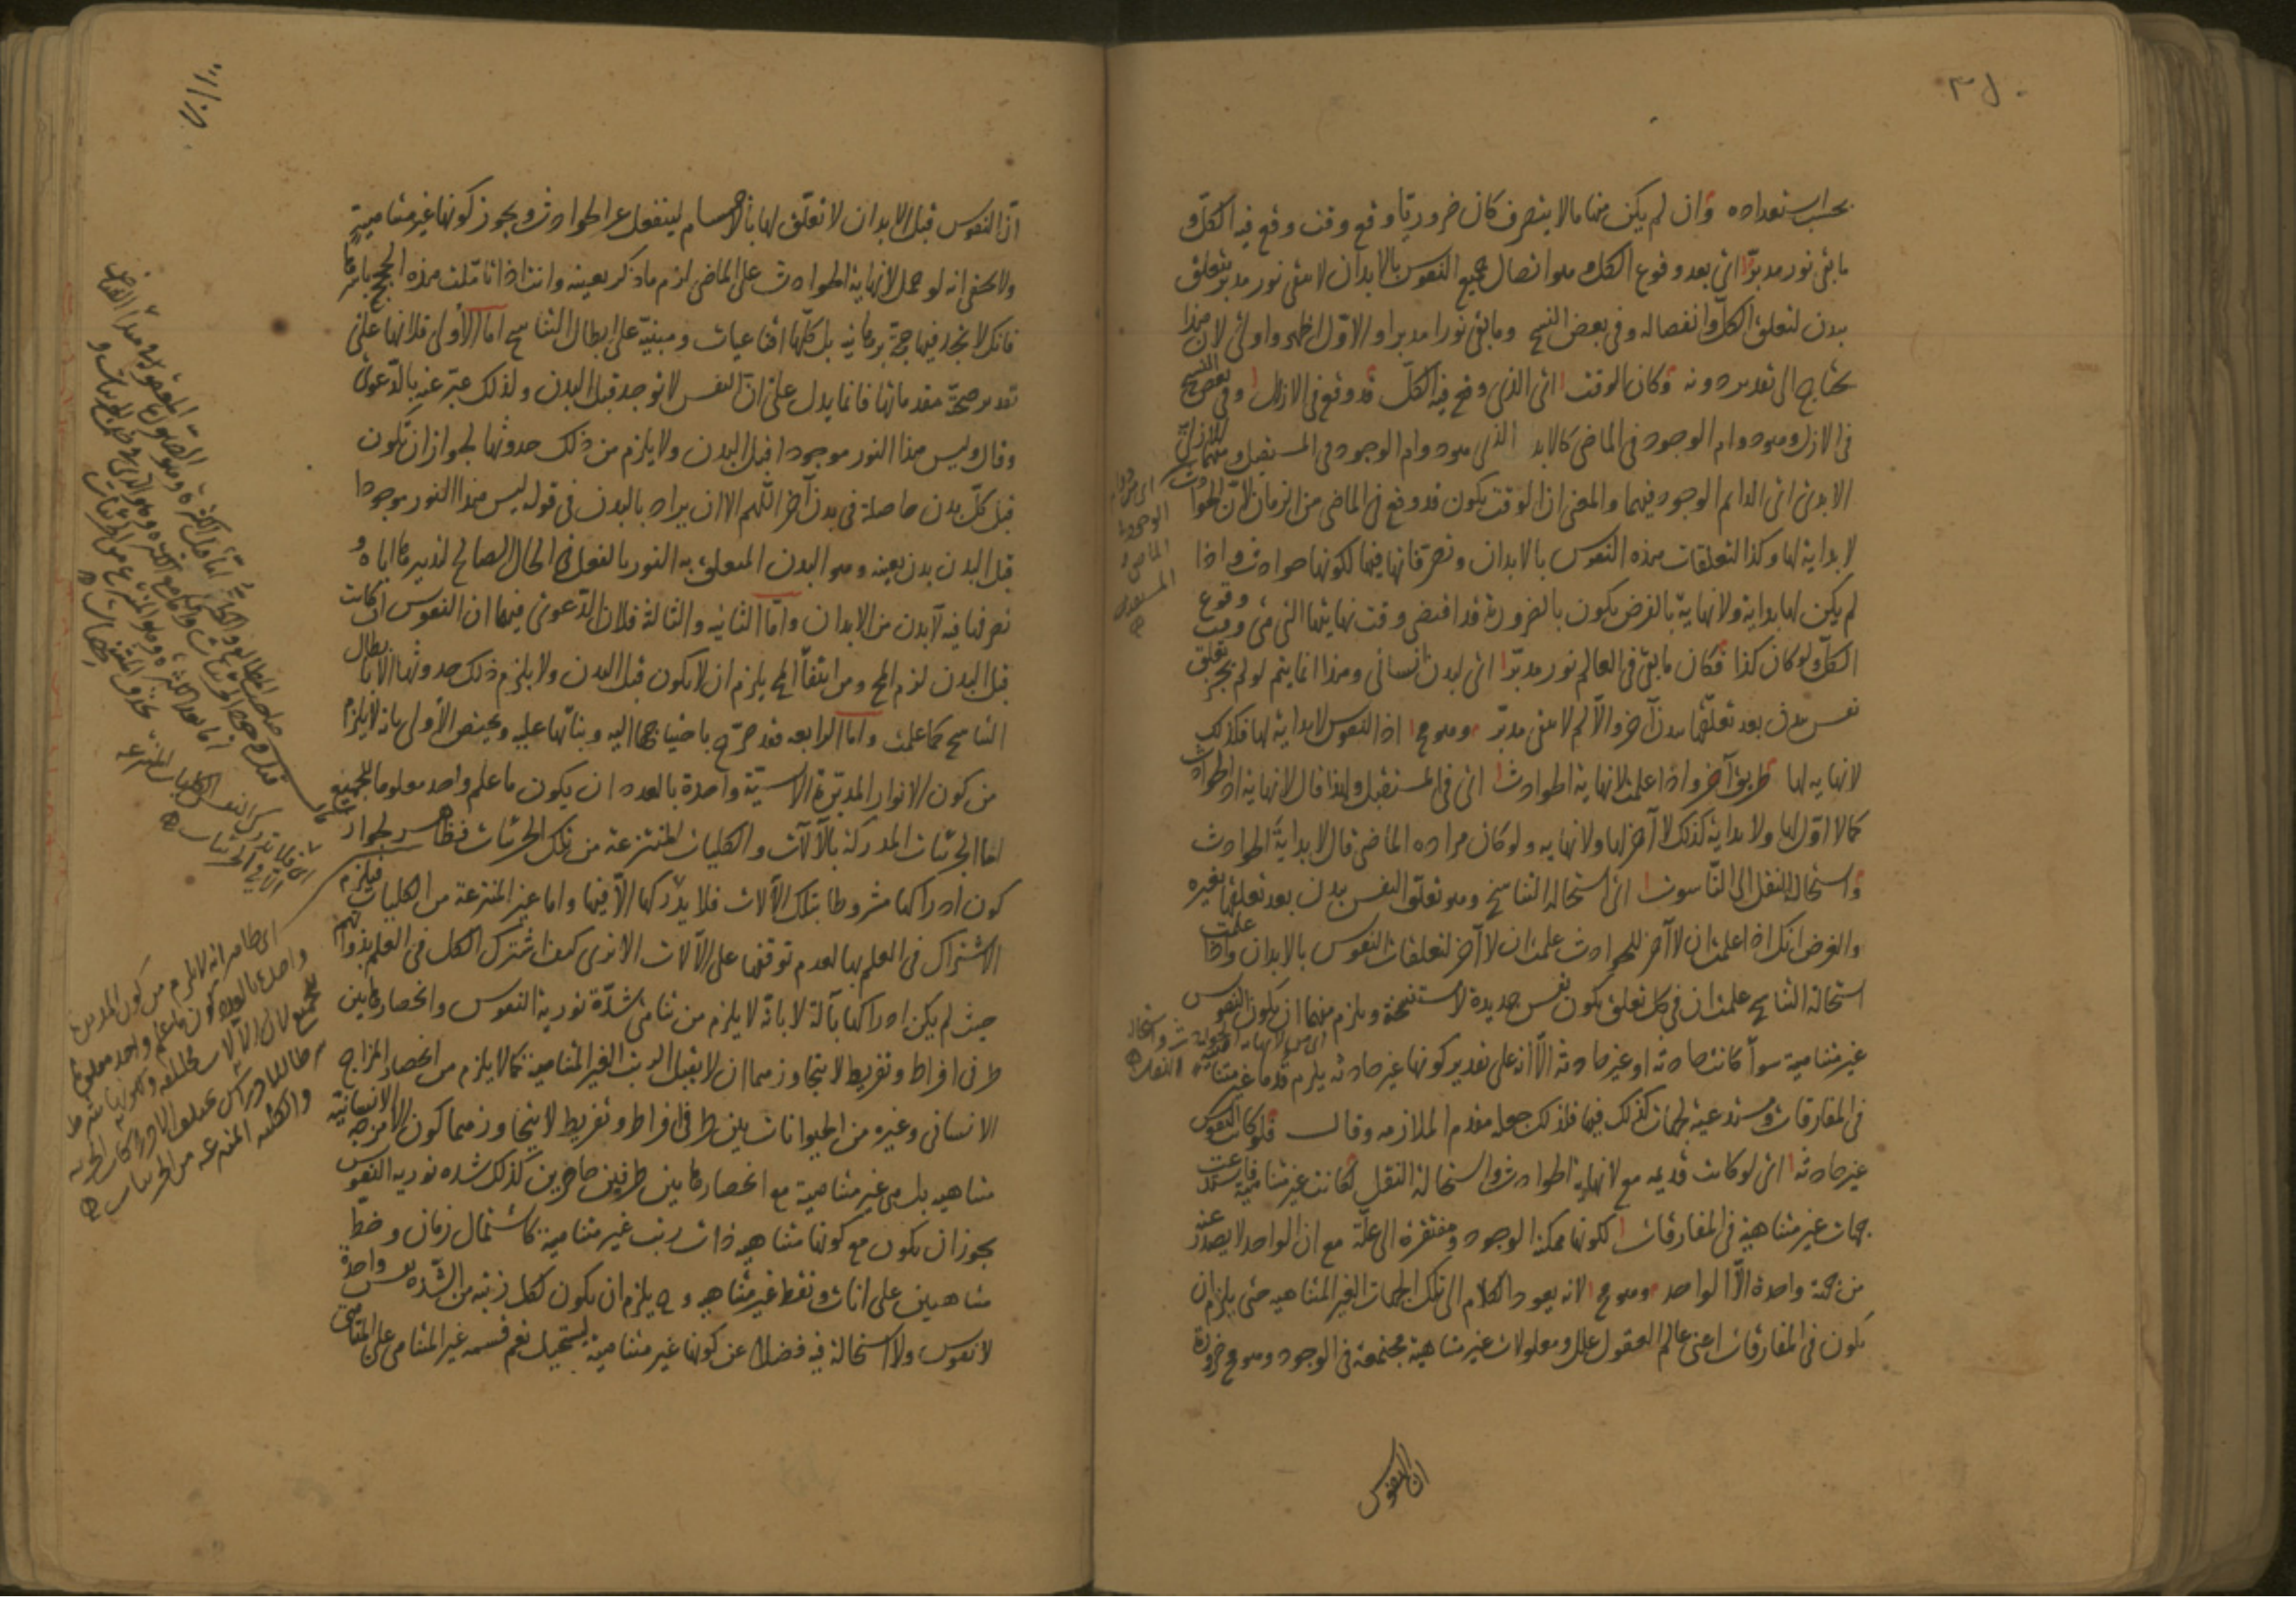 بحسب استعداده وان لم يكن منها ما لا يتصرف كان ضروريا وقع وقت وقع فيه الكل و
ما بقى نور مدبر اى بعد وقوع الكل وهو اتصال جميع النفوس بالابدان لا يبقى نور مدبر يتعلق
ببدن لتعلق الكل وانفصاله وفى بعض النسخ وما بقى نورا مدبرا والاول اظهر واولى لان هذا
يحتاج الى تقدير دونه وكان الوقت اى الذى وقع فيه الكل قد وقع فى الازال وفى بعض النسخ
فى الازل وهو دوام الوجود فى الماضى كالابد الذى هو دوام الوجود فى المستقبل
الابدى اى الدايم الوجود فيهما والمعنى ان الوقت يكون قد وقع فى الماضى من الزمان لان الحوادث
لا بداية لها وكذا التعلقات هذه النفوس بالابدان وتصرفاتها فيها لكونها حوادث واذا
لم يكن لها بداية ولا نهاية بالفرض يكون بالضرورة قد اقتضى وقت نهايتها التى هى وقت وقوع
الكل ولو كان كذا فكان ما بقى فى العالم نور مدبر اى لبدن انسانى وهذا انما يتم لو لم يجز تعلق
نفس ببدن بعد تعلقها ببدن آخر والا لم لا يبقى مدبر وهو مح اذ النفوس لا بداية لها فكذلك
لا نهاية لها طريق آخر واذا علمت لا نهاية الحوادث اى فى المستقبل ولهذا قال لا نهاية اذ الحوادث
كما لا اول لها ولا بداية كذلك لا آخر لها ولا نهايه ولو كان مراده الماضى قال لا بداية الحوادث
واستحالة النقل الى الناسوت اى استحالة التناسخ وهو تعلق النفس ببدن بعد تعلقها بغيره
والغرض انك اذا علمت ان لا آخر للحوادث علمت ان لا آخر لتعلقات النفوس بالابدان واذا علمت
استحالة التناسخ علمت ان فى كل تعلق يكون نفس جديدة لا مستنسخة ويلزم منهما ان يكون النفوس
غير متناهية سوآ كانت حادثه او غير حادثة الا انه على تقدير كونها غير حادثه يلزم قدما غير متناهية
فى المفارقات ومستدعية لجهات كذلك فيها فلذلك جعله مقدم الملازمه وقال فلو كانت النفوس
غير حادثه اى لو كانت قديمه مع لا نهاية الحوادث واستحالة النقل لكانت غير متناهية فاستدعت
جهات غير متناهية فى المفارقات لكونها ممكنة الوجود ومفتقرة الى علة مع ان الواحد لا يصدر عنه
من جهة واحدة الا الواحد وهو مح لانه يعود الكلام الى تلك الجهات الغير المتناهيه حتى يلزم ان
يكون فى المفارقات اعنى عالم العقول علل ومعلولات غير متناهية مجتمعة فى الوجود وهو مح ضرورة
اى دوام
الوجود فى
الماضى و
المستقبل
ان النفوس
ان النفوس قبل الابدان لا تعلق لها بالاجسام لينفعل عن الحوادث ويجوز كونها غير متناهية
ولا يخفى انه لو حمل لا نهاية الحوادث على الماضى لزم ما ذكر بعينه وانت اذا تاملت هذه الحجج باسرها
فانك لا تجد فيها حجة برهانيه بل كلها اقناعيات ومبنية على ابطال التناسخ اما الاولى فلانها على
تقدير صحة مقدماتها فانما يدل على ان النفس لا توجد قبل البدن ولذلك عبر عنه بالدعوى
وقال وليس هذا النور موجودا قبل البدن ولا يلزم من ذلك حدوثها لجواز ان تكون
قبل كل بدن حاصلة فى بدن آخر اللهم الا ان يراد بالبدن فى قوله ليس هذا النور موجودا
قبل البدن بدن بعينه وهو البدن المتعلق به النور بالفعل فى الحال الصالح لتدبيرها اياه و
تصرفها فيه لا بدن من الابدان واما الثانيه والثالثة فلان الدعوى فيهما ان النفوس ان كانت
قبل البدن لزم المح ومن انتفآ المح يلزم ان لا يكون قبل البدن ولا يلزم ذلك حدوثها الا بابطال
التناسخ كما علمت واما الرابعه فقد صرح باحتياجها اليه وبنائها عليه ويختص الاولى بانه لا يلزم
من كون الانوار المدبرة الانسية واحدة بالعدد ان يكون ما علم واحد معلوما للجميع
اما الجزئيات المدركة بالآلات والكليات المنتزعة من تلك الجزئيات فظاهر لجواز
كون ادراكها مشروطا بتلك الآلات فلا يدركها الا فيها واما غير المنتزعة من الكليات فيلزم
الاشتراك فى العلم بها لعدم توقفها على الآلات الا ترى كيف اشترك الكل فى العلم بذواتهم
حيث لم يكن ادراكها بآلة لا بانه لا يلزم من تناهى شدة نورية النفوس وانحصارها بين
طرفى افراط وتفريط لا يتجاوزهما ان لا يقبل الرتب الغير المتناهية كما لا يلزم من انحصار المزاج
الانسانى وغيره من الحيوانات بين طرفى افراط وتفريط لا يتجاوزهما كون الامزجة الانسانية
متناهيه بل هى غير متناهية مع انحصارها بين طرفين حاصرين كذلك شده نوريه النفوس
يجوز ان يكون مع كونها متناهيه ذات رتب غير متناهية كاشتمال زمان وخط
متناهيين على آنات ونقط غير متناهيه وح يلزم ان يكون لكل رتبة من الشدة نفس واحدة
لا نفوس ولا استحالة فيه فضلا عن كونها غير متناهية ليستحيل نعم قسمه غير المتناهى على المتناهى
اى ظاهر انه لا يلزم من كون المدبرة
واحدة بالعدد كون ما علم واحد معلوما
للجميع لان الآلات مختلفة
والكليه المنتزعه من الجزئيات